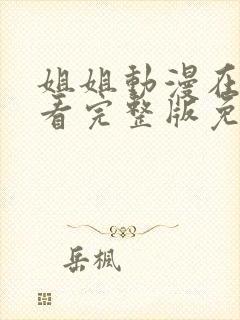 姐姐動漫在
看完整版免
岳楓